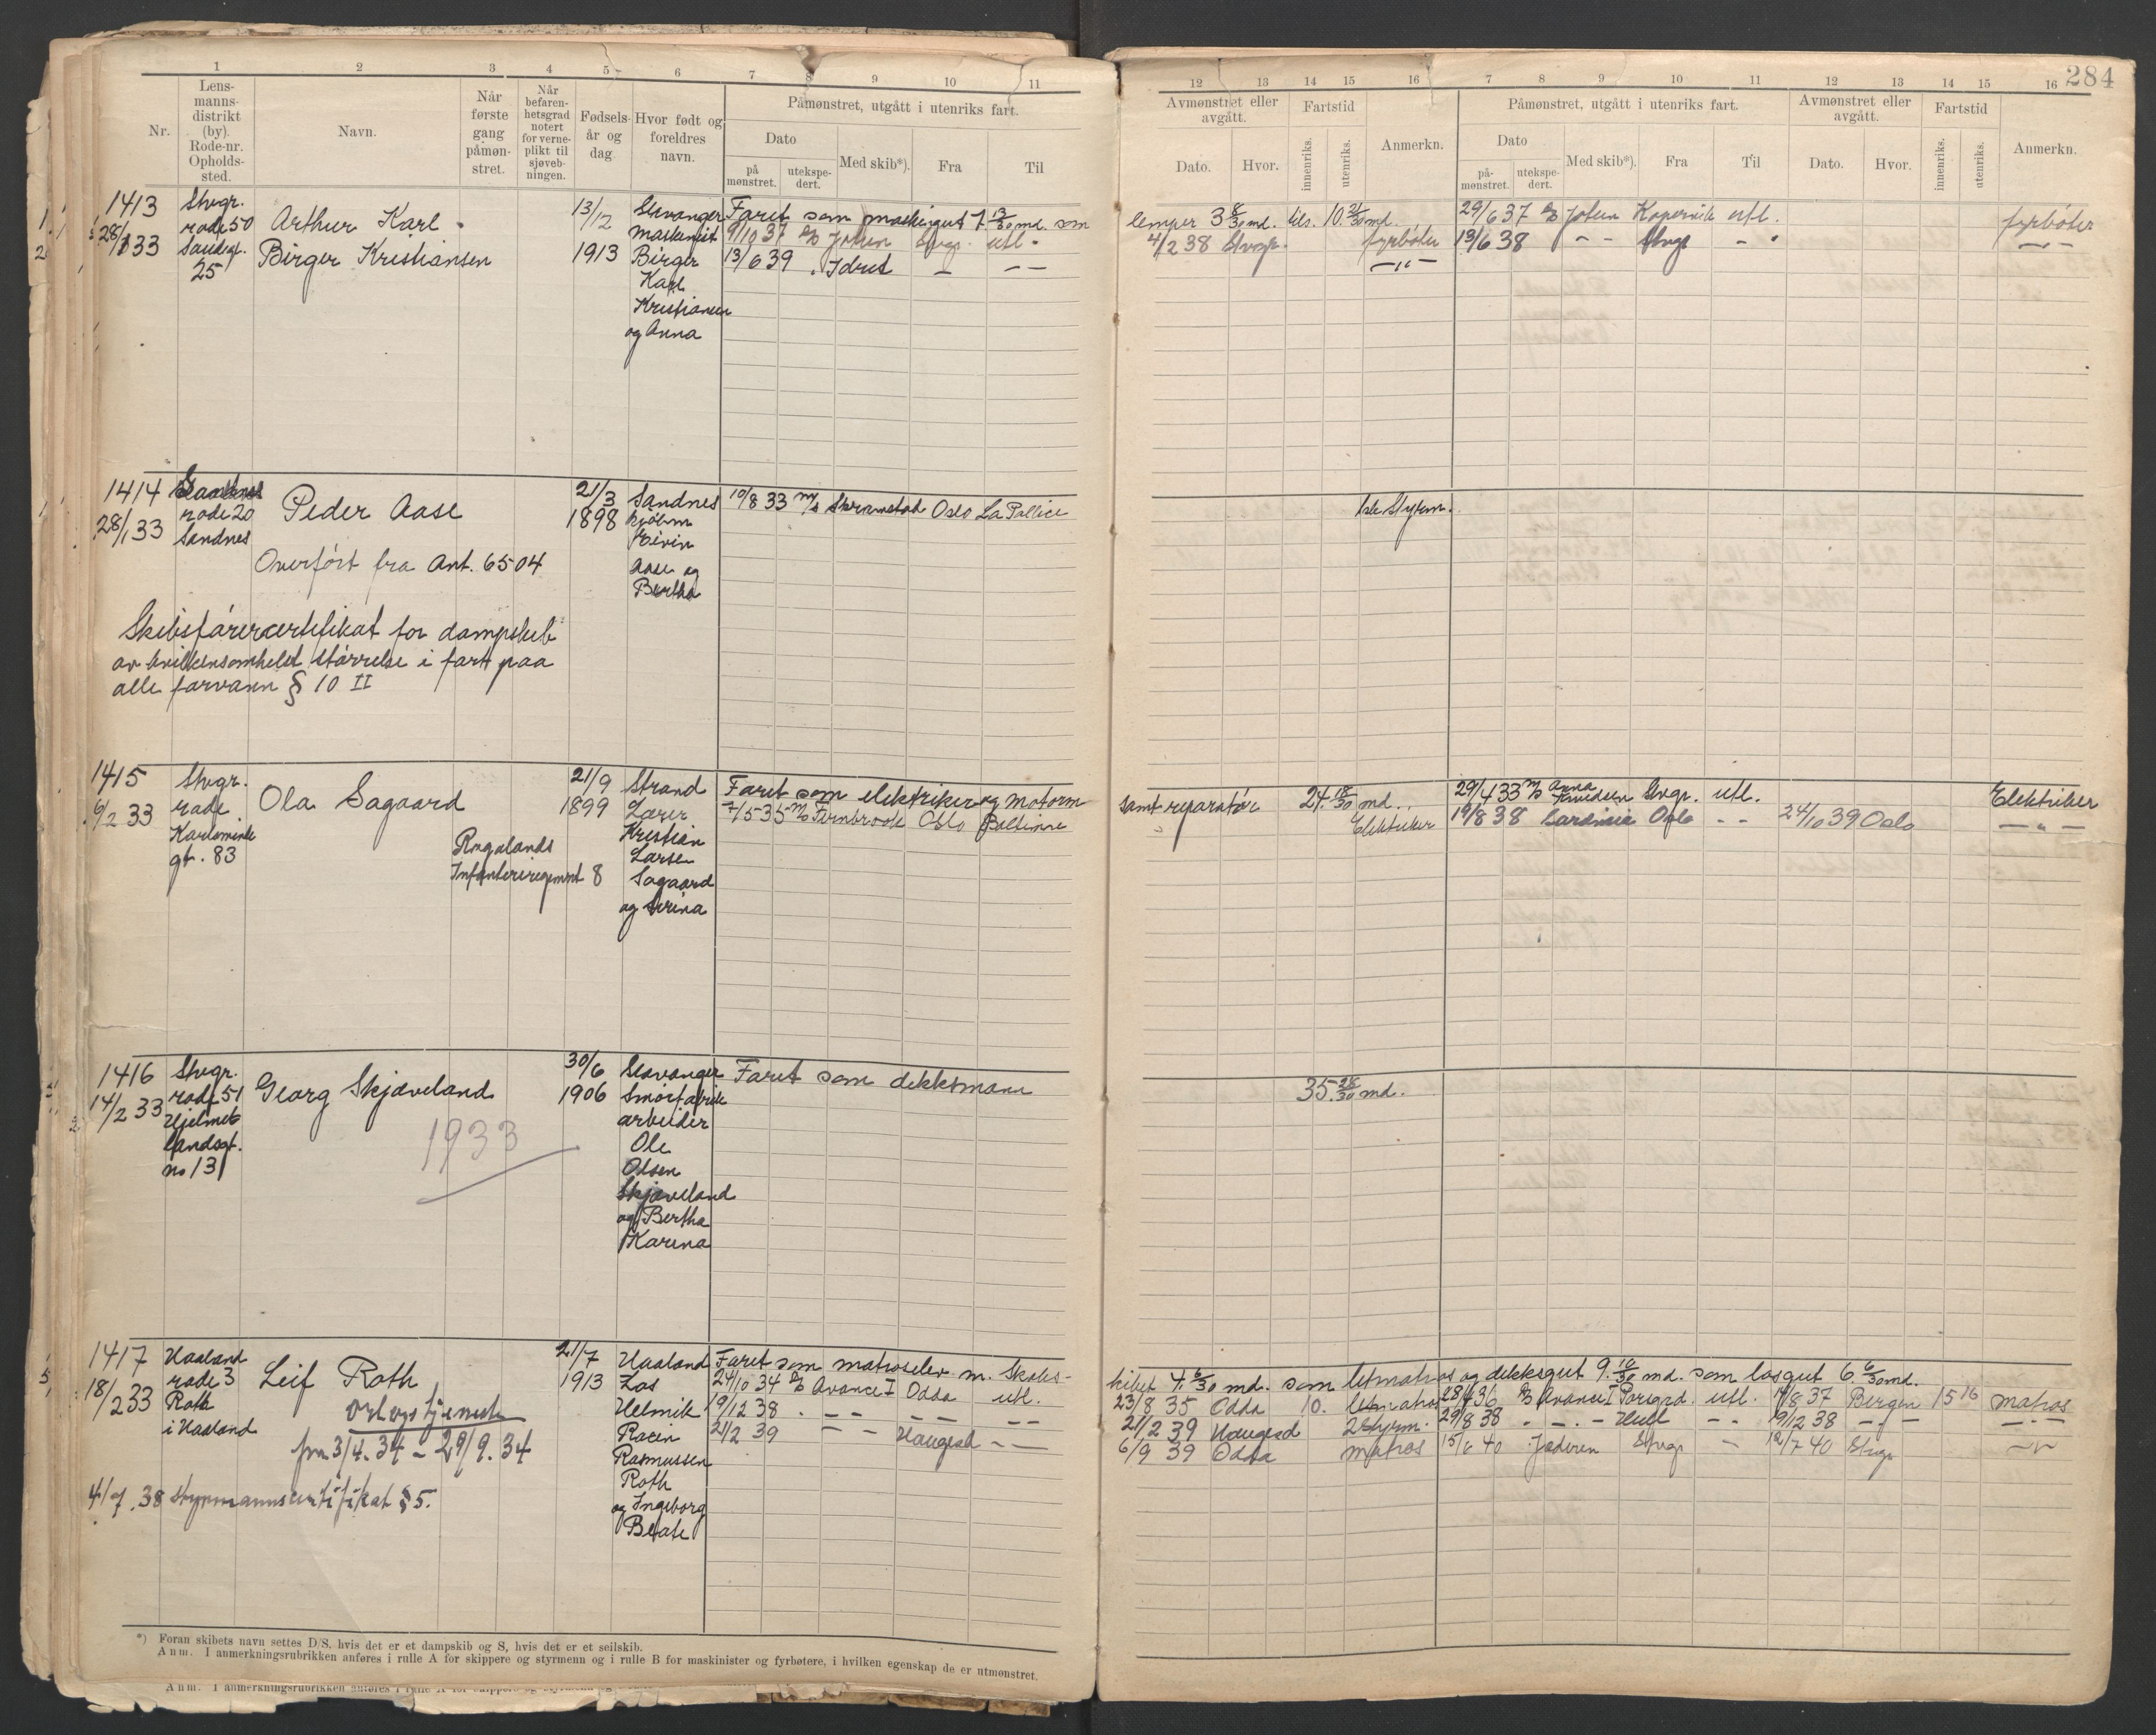 1 2 3 4 5 6 7 8 9 10 11
Nr.
Lens-
manns-
distrikt
(by).
Rode-nr.
Opholds-
sted.
Navn.
Når
første
gang
påmøn-
stret.
Når
befaren-
hetsgrad
notert
for verne-
plikt til
sjøveb-
ningen.
Fødsels-
år og
dag.
Hvor født og
foreldres
navn.
Påmønstret, utgått i utenriks fart.
Dato
på
mønstret.
utekspe-
dert.
Med skib*).
Fra
Til
12 13 14 15 16 7 8 9 10 11 12 13 14 15 16
284
Avmønstret eller
avgått.
Dato.
Hvor.
Fartstid
innenriks.
utenriks.
Anmerkn.
Påmønstret, utgått i utenriks fart.
Dato
på-
mønstret.
utekspe-
dert.
Med skib*).
Fra
Til
Avmønstret eller
avgått.
Dato.
Hvor.
Fartstid
innenriks.
utenriks.
Anmerkn.
1413
28/1 33
Stvgr.
rode 50
Sandsgt.
25
Arthur Karl
Birger Kristiansen
13/12
1913
Stavanger
maskinist
Birger
Karl
Kristiansen
og Anna
Faret som maskingut 7 13/30 md. som
9/10 37 D/S Johan Stvgr. utl.
13/6 39 " Idret — — —
lemper 3 8/30 md. tils. 10. 21/30 md.
29/6 37 D/S Johan Kopervik utl. fyrbøter
4/2 38 Stvgr. fyrbøter 13/6 38 — — Stvgr — " —"—
—"—
1414
28/1 33
Sandnes
rode 20
Sandnes
Peder Aase
Overført fra Ant. 6504
Skibsførercertifikat for dampskib
av hvilkensomhelst størrelse i fart paa
alle farvann § 10 II
21/3
1898
Sandnes
Eivin
Aase og
Bertha
10/8 33 M/S Skramstad Oslo La Pallice
1ste Styrm.
1415
6/2 33
Stvgr.
rode
Karlsminde
gt. 83
Ola Sagaard
Rogalands
Infanteriregiment 8
21/9
1899
Strand
Lærer
Kristian
Larsen
Sagaard
og Serina
Faret som elektriker og motorm
7/5 35 M/S Fernbrook Oslo Baltimore
samt reparatør 24. 18/30 md.
Elektriker
29/4 33 M/S Anna Knudsen Stvgr. utl. Elektriker
19/8 38 Sardinia Oslo — — 24/10 39 Oslo —"—
1416
14/2 33
Stvgr.
rode 51
Hjelme-
landsgt.
no 13
Georg Skjæveland
1933
30/6
1906
Stavanger
Smørfabrik
arbeider
Ole
Olsen
Skjæveland
og Bertha
Karina
Faret som dekksmann
35. 28/30 md.
1417
18/2 33
Haaland
rode 3
Roth
i Haaland
Leif Roth
orlogstjeneste
fra 3/4. 34 – 29/9. 34
4/7. 38 styrmannscertifikat § 5.
21/7
1913
Haaland
Los
Helmik
Racin
Rasmussen
Roth
og Ingeborg
Beate
Faret som matroselev m. Skoles-
24/10 34 D/S Avance I Odda utl.
19/12 38 " — — — — — —
21/2 39 — — Haugesd — —
kibet 4. 6/30 md. som letmatros og dekksgut 9. 10/30 md. som losgut 6. 6/30 md.
23/8 35 Odda 10. letmatros 28/4 36 D/S Avance I Porsgrd. utl. 14/8 37 Bergen 15 16 matros
21/2 39 Haugesd 2 Styrm. 29/8 38 " — " — Hull — — 19/12 38 — " — —"—
6/9 39 Odda matros 15/6 40 Jæderen Stvgr — 12/7 40 Stvgr —"—
*) Foran skibets navn settes D/S. hvis det er et dampskib og S, hvis det er et seilskib.
Anm. I anmerkningsrubrikken anføres i rulle A for skippere og styrmenn og i rulle B for maskinister og fyrbøtere, i hvilken egenskap de er utmønstret.
Anm. I anmerkningsrubrikken anføres i rulle A for skippere og styrmenn og